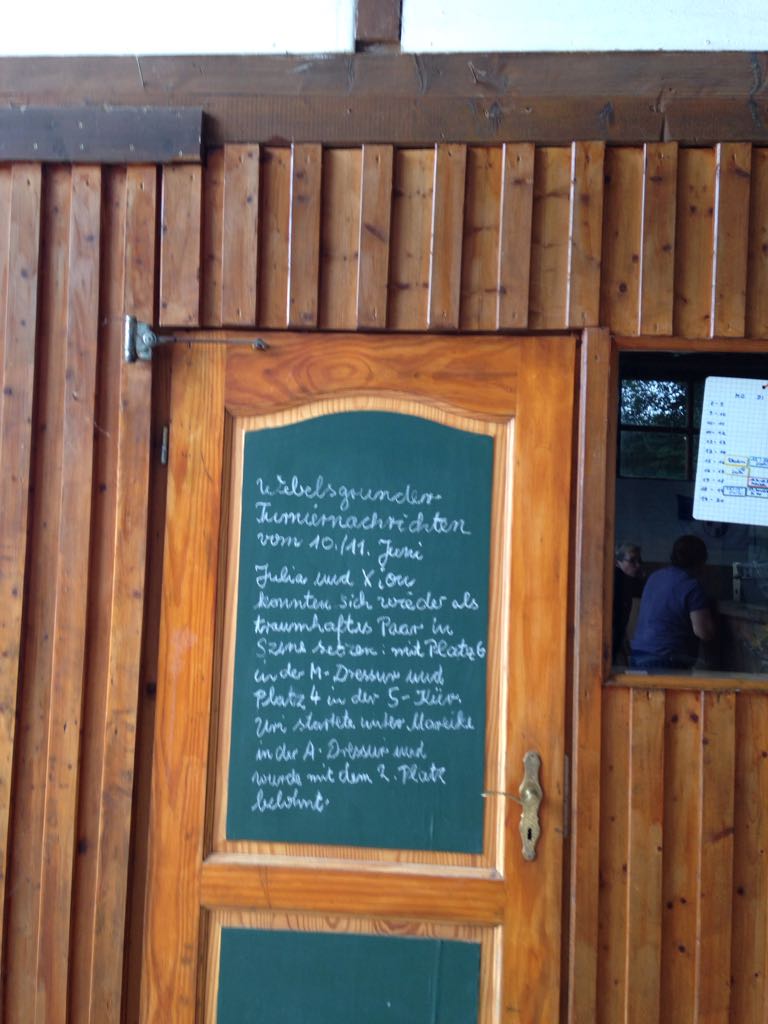 Wiebelsgrunder
Turniernachrichten
vom 10./11. Juni
Julia und Xiou
konnten sich wieder als
traumhaftes Paar in
Szene setzen: mit Platz 6
in der M-Dressur und
Platz 4 in der S-Kür.
Uri startete unter Mareike
in der A-Dressur und
wurde mit dem 2. Platz
belohnt.
MO DI